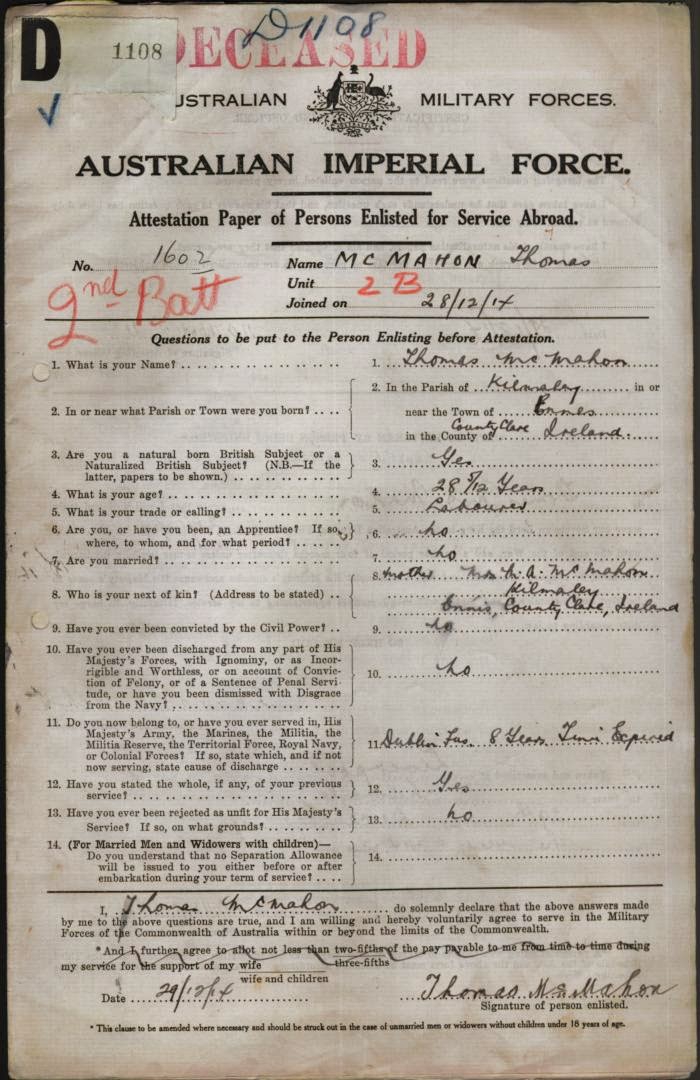 D1108
D 1108 DECEASED
AUSTRALIAN MILITARY FORCES.
AUSTRALIAN IMPERIAL FORCE.
Attestation Paper of Persons Enlisted for Service Abroad.
No. 1602 Name MC MAHON Thomas
2nd Batt
Unit 2 B
Joined on 28/12/14
Questions to be put to the Person Enlisting before Attestation.
1. What is your Name? 1. Thomas McMahon
2. In or near what Parish or Town were you born? 2. In the Parish of Kilmaley in or
near the Town of Ennis
in the County of County Clare Ireland.
3. Are you a natural born British Subject or a
Naturalized British Subject? (N.B.—If the
latter, papers to be shown.) 3. Yes
4. What is your age? 4. 28 5/12 Years
5. What is your trade or calling? 5. Labourer
6. Are you, or have you been, an Apprentice? If so,
where, to whom, and for what period? 6. No
7. Are you married? 7. No
8. Who is your next of kin? (Address to be stated) 8. Mother Mrs M. A. McMahon
Kilmaley
Ennis, County Clare, Ireland
9. Have you ever been convicted by the Civil Power? 9. No
10. Have you ever been discharged from any part of His
Majesty's Forces, with Ignominy, or as Incor-
rigible and Worthless, or on account of Convic-
tion of Felony, or of a Sentence of Penal Servi-
tude, or have you been dismissed with Disgrace
from the Navy? 10. No
11. Do you now belong to, or have you ever served in, His
Majesty's Army, the Marines, the Militia, the
Militia Reserve, the Territorial Force, Royal Navy,
or Colonial Forces? If so, state which, and if not
now serving, state cause of discharge 11. Dublin Fus. 8 Years Time Expired
12. Have you stated the whole, if any, of your previous
service? 12. Yes
13. Have you ever been rejected as unfit for His Majesty's
Service? If so, on what grounds? 13. No
14. (For Married Men and Widowers with children)—
Do you understand that no Separation Allowance
will be issued to you either before or after
embarkation during your term of service? 14.
I, Thomas McMahon do solemnly declare that the above answers made
by me to the above questions are true, and I am willing and hereby voluntarily agree to serve in the Military
Forces of the Commonwealth of Australia within or beyond the limits of the Commonwealth.
*And I further agree to allot not less than two-fifths of the pay payable to me from time to time during
three-fifths
my service for the support of my wife
wife and children
Date 29/12/14 Thomas McMahon
Signature of person enlisted.
* This clause to be amended where necessary and should be struck out in the case of unmarried men or widowers without children under 18 years of age.